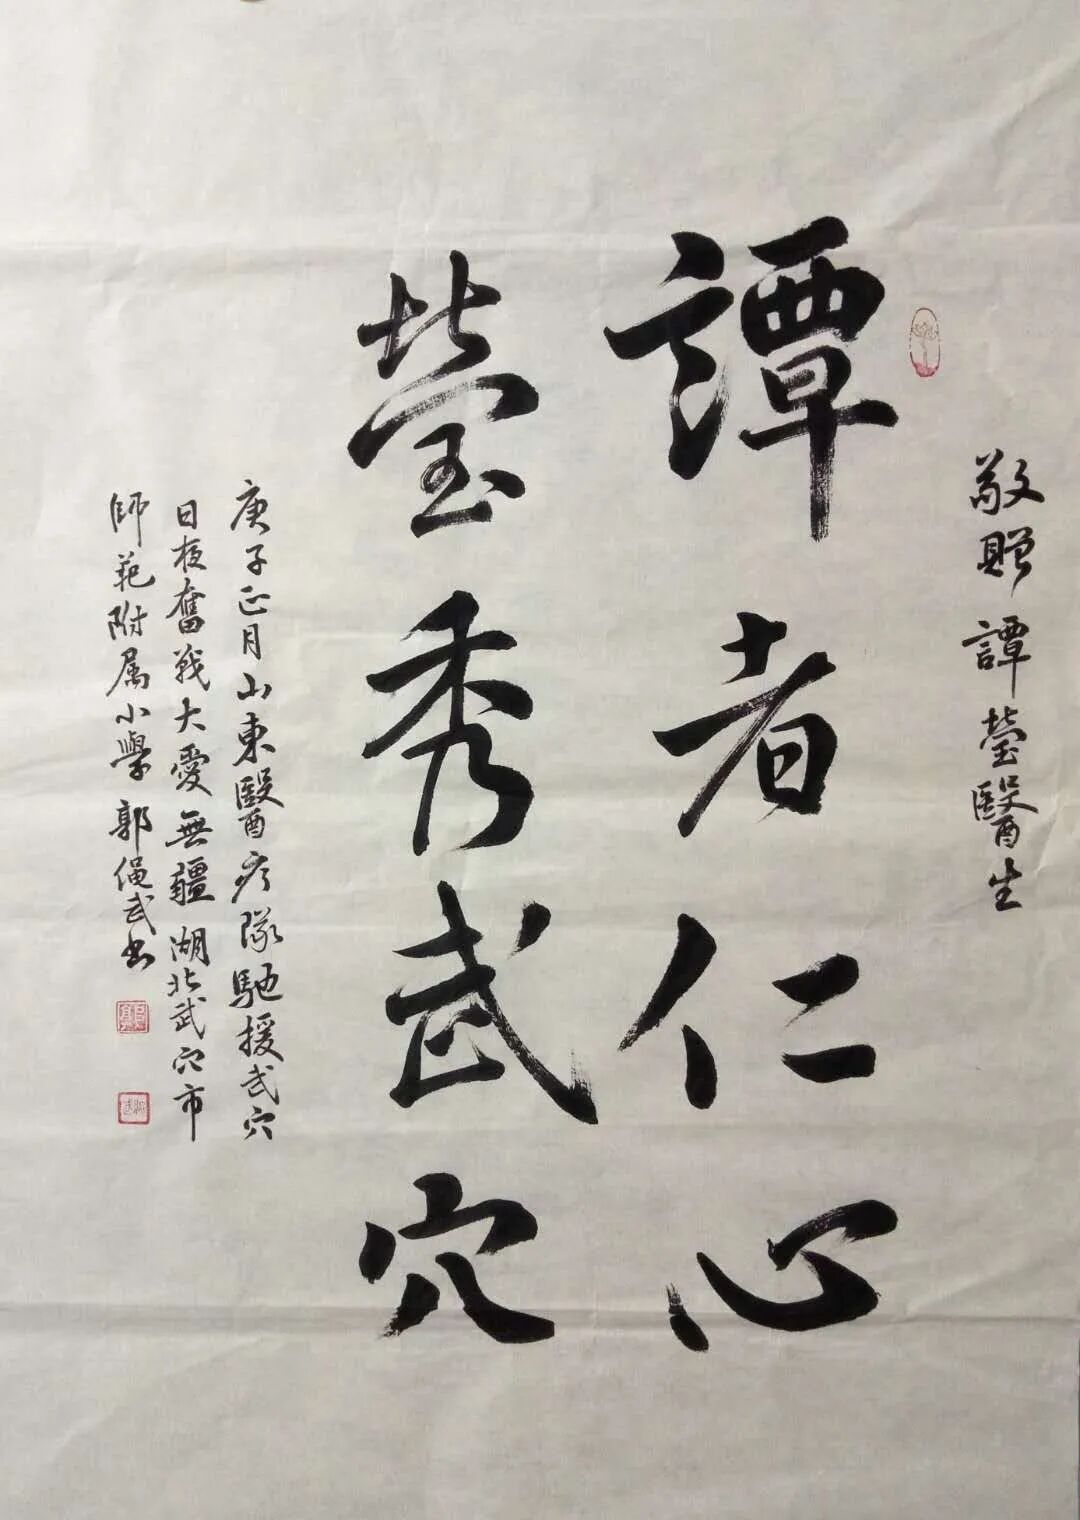 敬贈譚瑩醫生
譚者仁心
瑩秀武穴
庚子正月山東醫疗隊馳援武穴
日夜奮戰大愛無疆湖北武穴市
師範附属小學郭绳武书